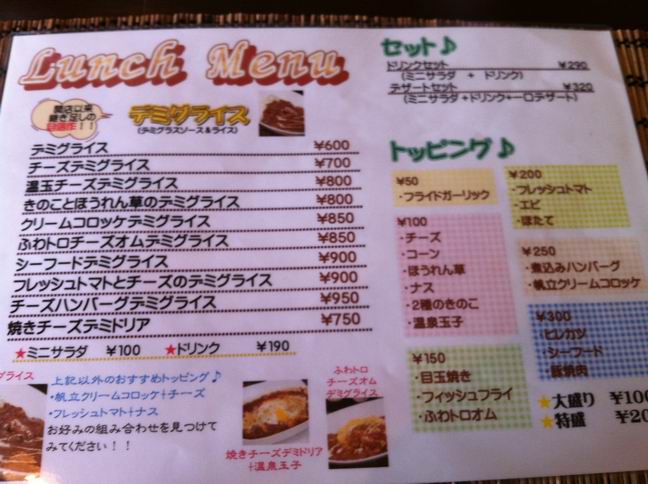 Lunch Menu
開店以来
継ぎ足しの
自信作!!
デミグライス
(デミグラスソース&ライス)
デミグライス ¥600
チーズデミグライス ¥700
温玉チーズデミグライス ¥800
きのことほうれん草のデミグライス ¥800
クリームコロッケデミグライス ¥850
ふわトロチーズオムデミグライス ¥850
シーフードデミグライス ¥900
フレッシュトマトとチーズのデミグライス ¥900
チーズハンバーグデミグライス ¥950
焼きチーズデミドリア ¥750
★ミニサラダ ¥100 ★ドリンク ¥190
グライス
上記以外のおすすめトッピング♪
・帆立クリームコロッケ+チーズ
・フレッシュトマト+ナス
お好みの組み合わせを見つけて
みてください!!
焼きチーズデミドリア
+温泉玉子
ふわトロ
チーズオム
デミグライス
セット♪
ドリンクセット ¥290
(ミニサラダ + ドリンク)
デザートセット ¥320
(ミニサラダ+ドリンク+一口デザート)
トッピング♪
¥50
・フライドガーリック
¥100
・チーズ
・コーン
・ほうれん草
・ナス
・2種のきのこ
・温泉玉子
¥150
・目玉焼き
・フィッシュフライ
・ふわトロオム
¥200
・フレッシュトマト
・エビ
・ほたて
¥250
・煮込みハンバーグ
・帆立クリームコロッケ
¥300
・ヒレカツ
・シーフード
・豚焼肉
★大盛り ¥100
★特盛 ¥20